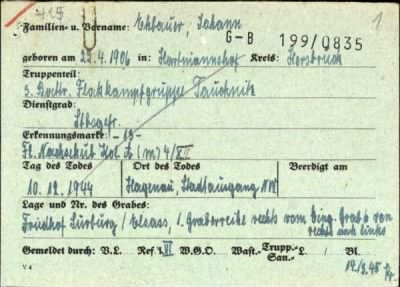 415
1
Familien- u. Vorname: Ekbauer, Johann
G-B 199/0835
geboren am 25.4.1906 in: Hartmannshof Kreis: Hersbruck
Truppenteil:
3. Battr. Flakkampfgruppe
Dienstgrad:
Stbsgefr.
Erkennungsmarke: -19-
Fl. Nachschub Kol. (m) 4/XII
Tag des Todes Ort des Todes Beerdigt am
10.12.1944 Hagenau, Stadtausgang NW
Lage und Nr. des Grabes:
Friedhof Surburg/Elsass, 1. Gräberreihe rechts vom Eing. Grab 6 von
rechts nach links
Gemeldet durch: V.L. Ref. VI W.G.O. Wast.- Trupp.- San.- L./ Bl.
V 4
14.2.45